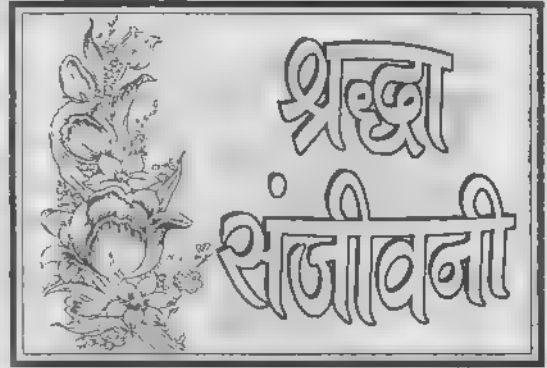 श्रद्धा
संजीवनी